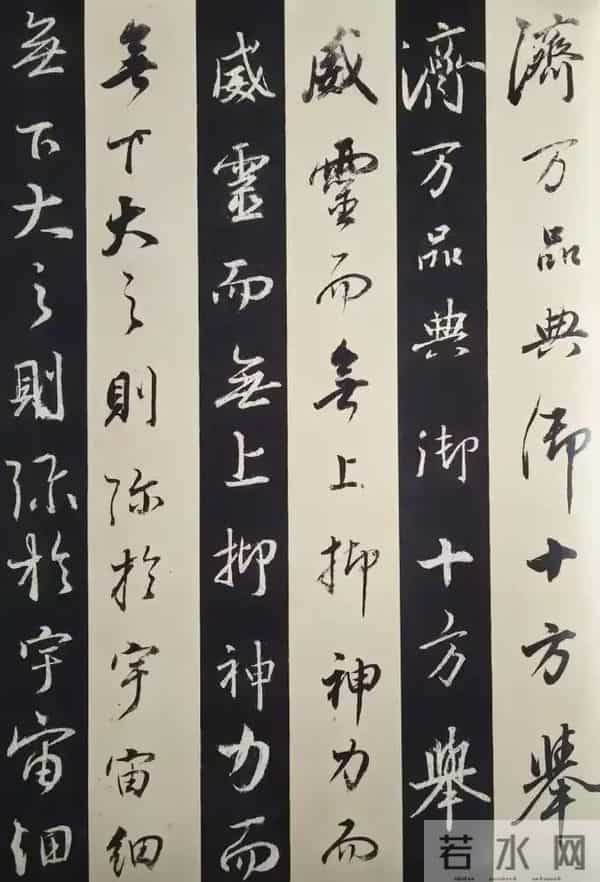 濟万品典御十方舉
濟万品典御十方舉
威靈而無上抑神力而
威靈而無上抑神力而
無下大之則弥於宇宙細
無下大之則弥於宇宙細
若水网